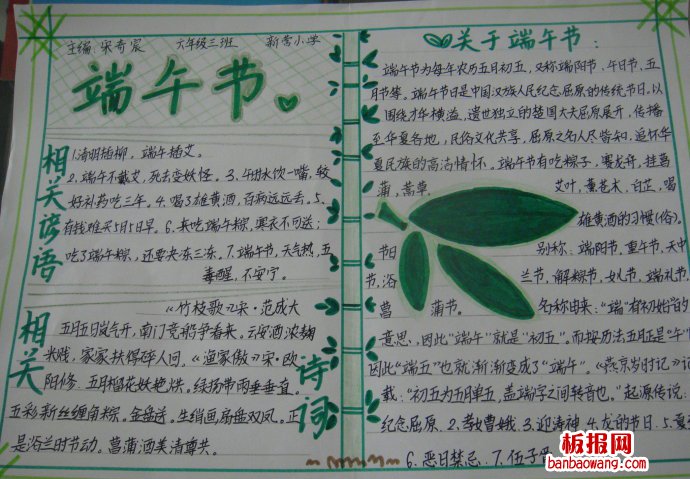 主编：梁奇宸 六年级三班 新营小学
端午节
相关谚语
1.清明插柳，端午插艾。
2.端午不戴艾，死去变妖怪。3.午时水饮一嘴，较
好补药吃三年。4.喝了雄黄酒，百病远远去。5.
有钱难买5月5日早。6.未吃端午粽，寒衣不可送；
吃了端午粽，还要冻三冻。7.端午节，天气热，五
毒醒，不安宁。
相关诗词
《竹枝歌》宋·范成大
五月五日岚气开，南门竞船争看来。云安酒浓麹
米贱，家家扶得碎人回。《渔家傲》宋·欧
阳修 五月榴花妖艳烘。绿杨带雨垂垂重。
五彩新丝缠角粽。金盘送。生绡画扇盘双凤。正
是浴兰时节动。菖蒲酒美清尊共。
关于端午节：
端午节为每年农历五月初五，又称端阳节，午日节，五
月节等。端午节日是中国汉族人民纪念屈原的传统节日，以
围绕才华横溢、遗世独立的楚国大夫屈原展开，传播
至华夏各地，民俗文化共享，屈原之名人尽皆知，追怀华
夏民族的高洁情怀。端午节有吃粽子，赛龙舟，挂菖
蒲，蒿草，艾叶，薰苍术，白芷，喝
雄黄酒的习惯(俗)。
节日别称：端阳节，重午节，天中
节，浴兰节，解粽节，女儿节，端礼节
菖蒲节。名称由来：“端”有初始的
意思，因此“端午”就是“初五”。而按历法五月正是“午”
因此“端五”也就渐渐变成了“端午”。《燕京岁时记》记
载：“初五为五月单五，盖端字之间转音也。”起源传说：
纪念屈原、2.孝女曹娥、3.迎涛神 4.龙的节日.5.夏
6.恶日禁忌、7.伍子
板报网
banbaowang.com